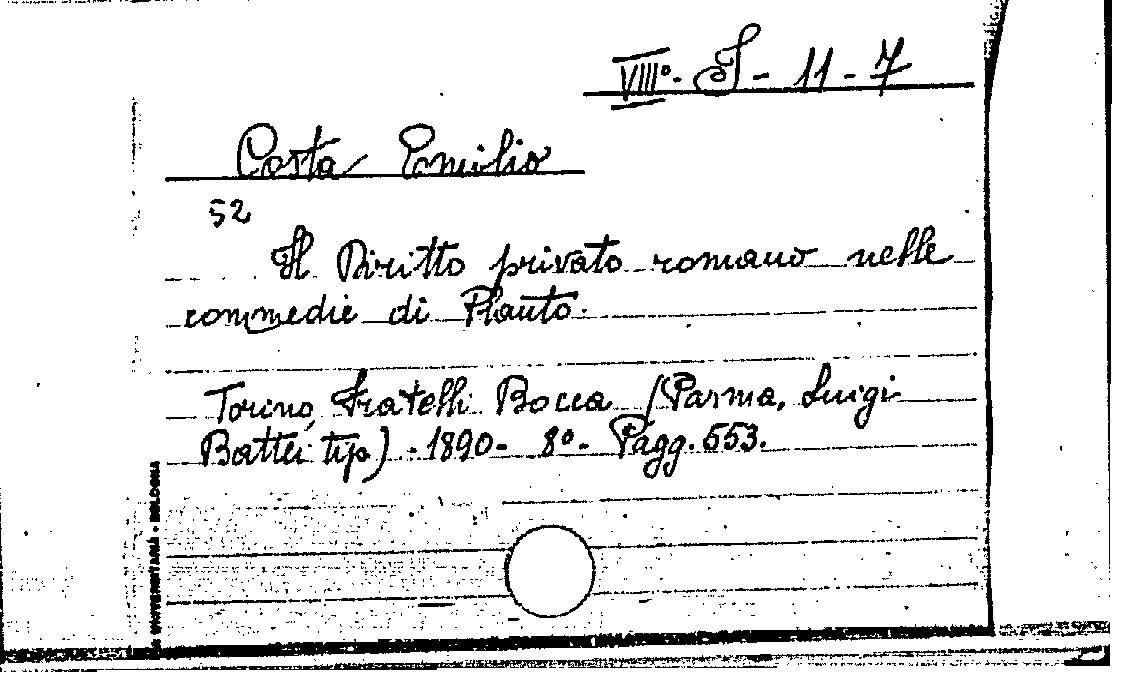 VIII°- S - 11 - 7
Costa Emilio
52
Il Diritto privato romano nelle
commedie di Plauto.
Torino, Fratelli Bocca (Parma, Luigi
Battei tip) - 1890 - 8° - Pagg. 553.
UNIVERSITARIA • BOLOGNA